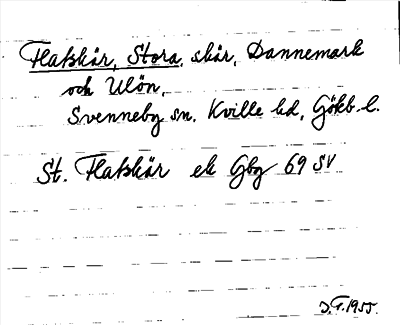 Flatskär, Stora, skär, Dannemark
och Ulön,
Svenneby sn. Kville hd, Gökb l.
St. Flatskär ek Gbg 69 SV
J.F. 1955.